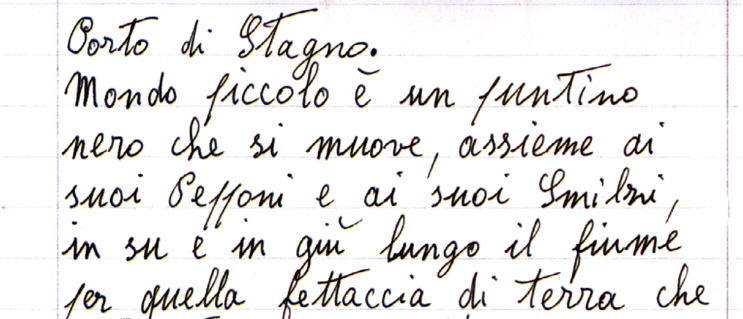 Porto di Stagno.
Mondo piccolo è un puntino
nero che si muove, assieme ai
suoi Pepponi e ai suoi Smilzi,
in su e in giù lungo il fiume
per quella fettaccia di terra che